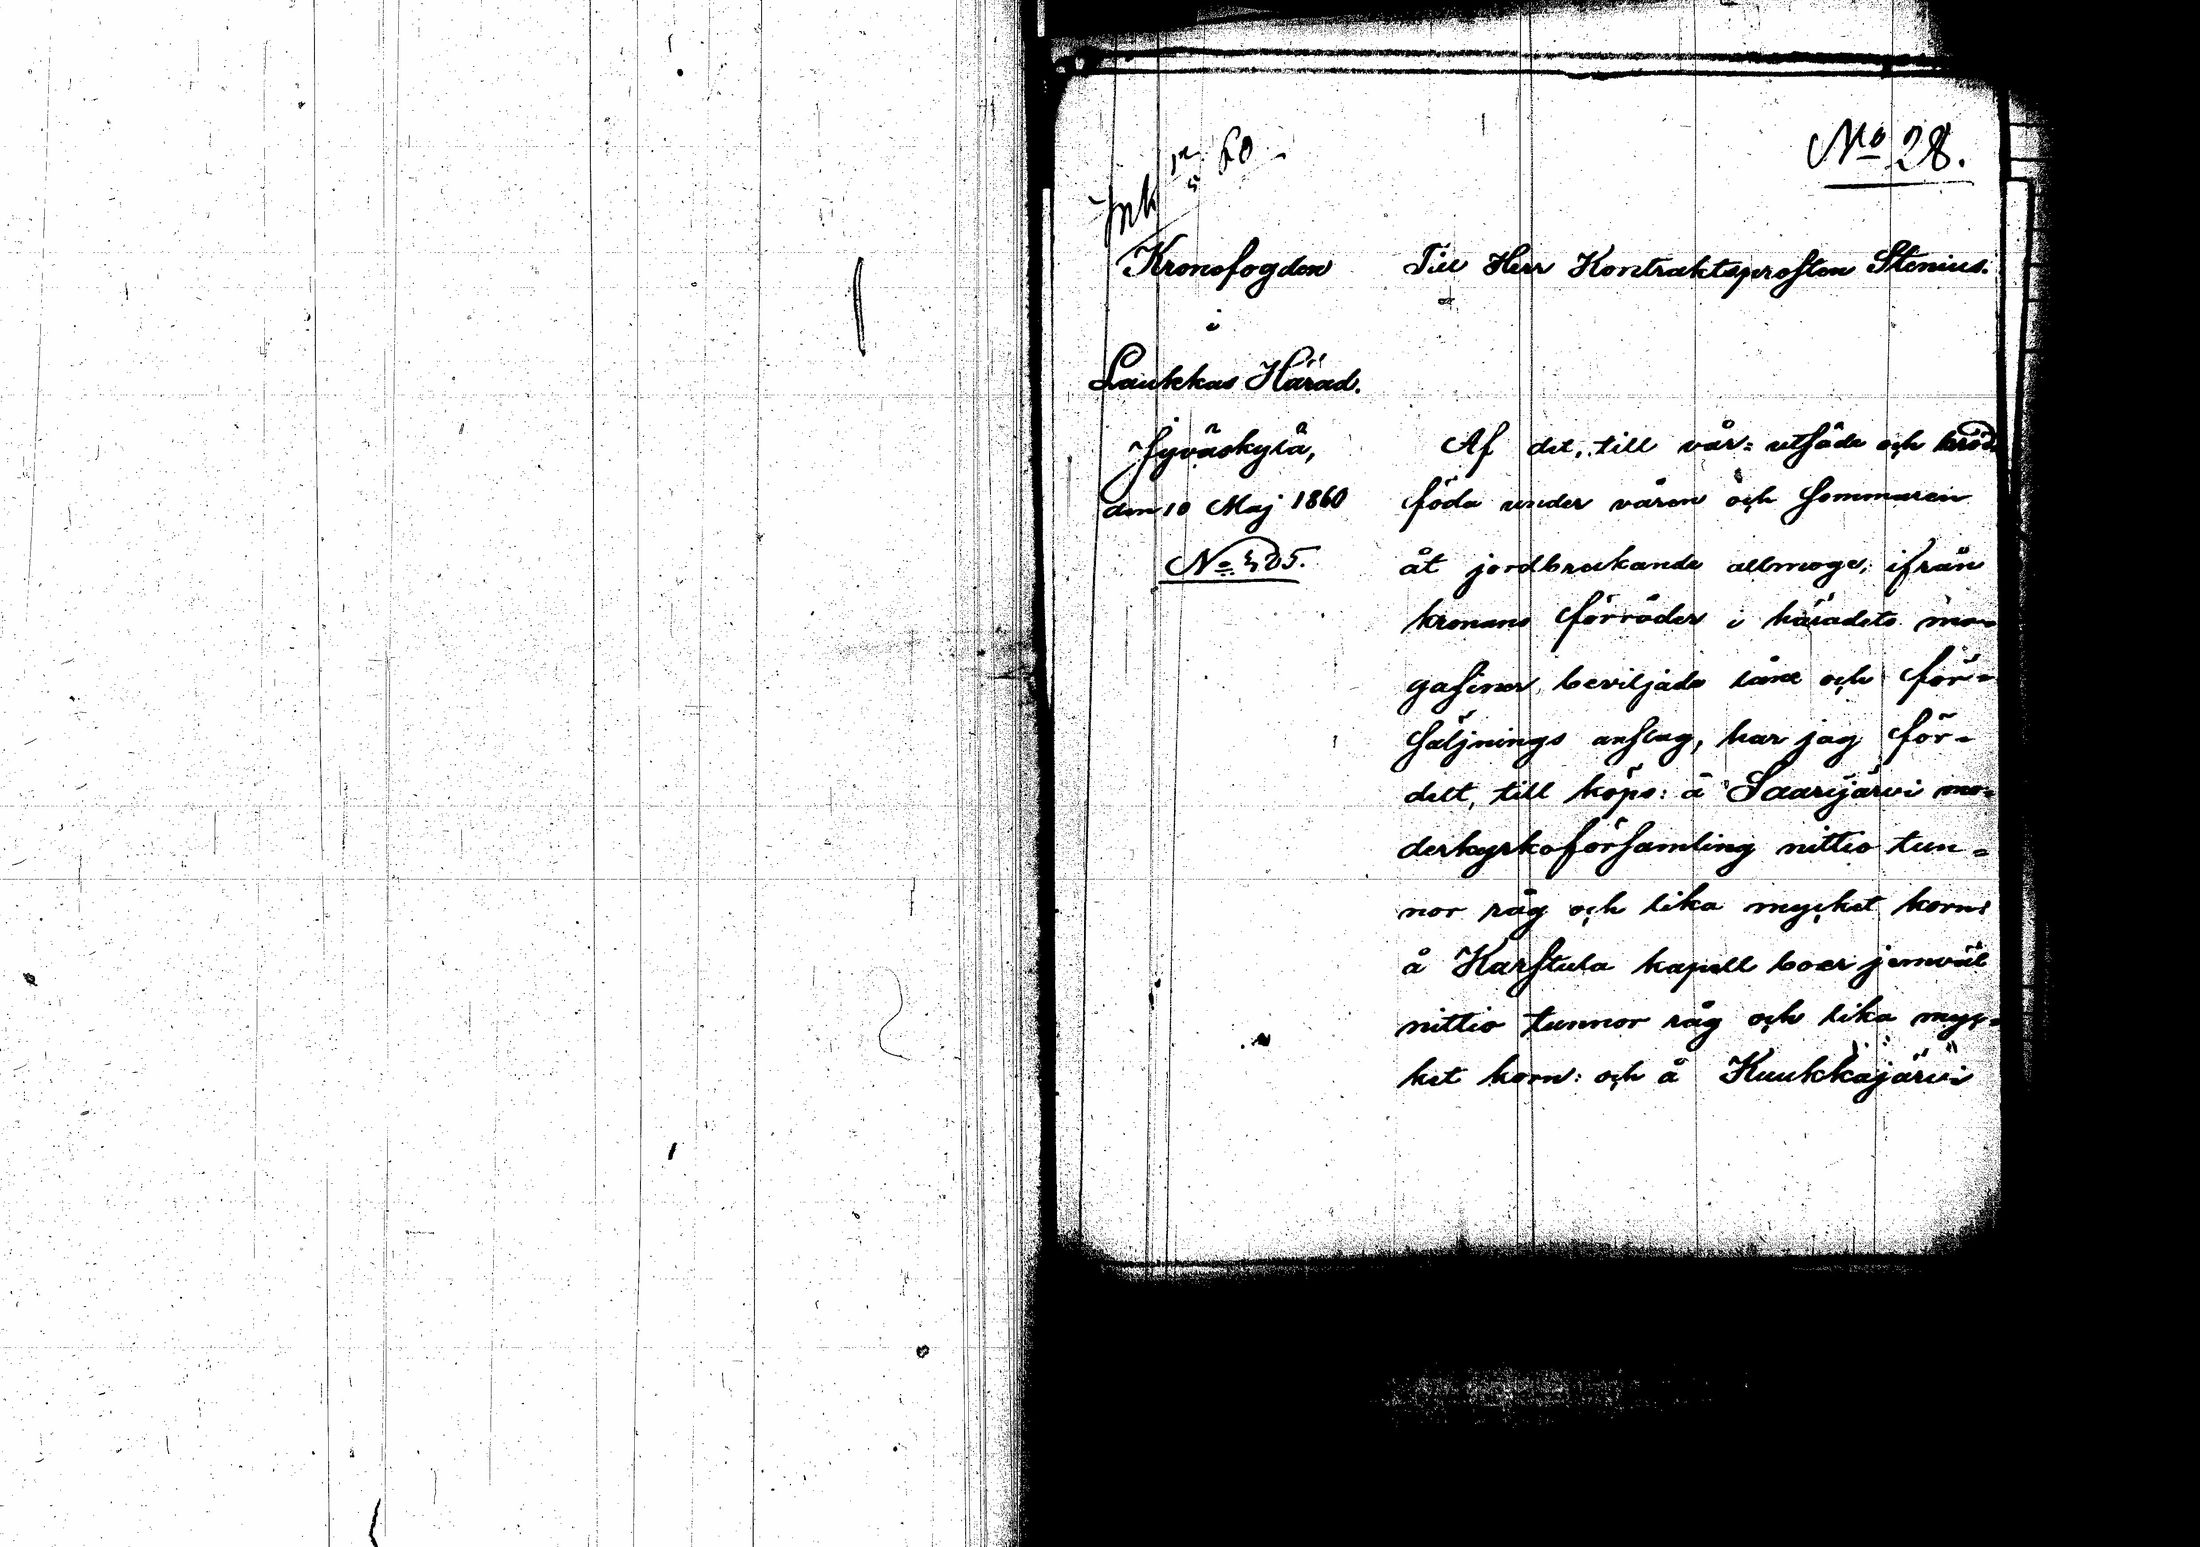 No 28.
Ink 12/5 60.
Kronofogden
i
Laukkas Härad.
Jyväskylä,
den 10 Maj 1860
No 405.
Till Herr Kontraktsprosten Stenius.
Af det, till vår= utsäde och bröd=
föda under våren och sommaren
åt jordbrukande allmoge, ifrån
kronans förråder i häradets ma=
gasiner beviljade låne och för=
säljnings anslag, har jag för=
delt, till köps: å Saarijärvi mo=
derkyrkoförsamling nittio tun=
nor råg och lika mycket korn:
å Karstula kapell boer jemväl
nittio tunnor råg och lika myc=
ket korn: och å Kuukkajärvi